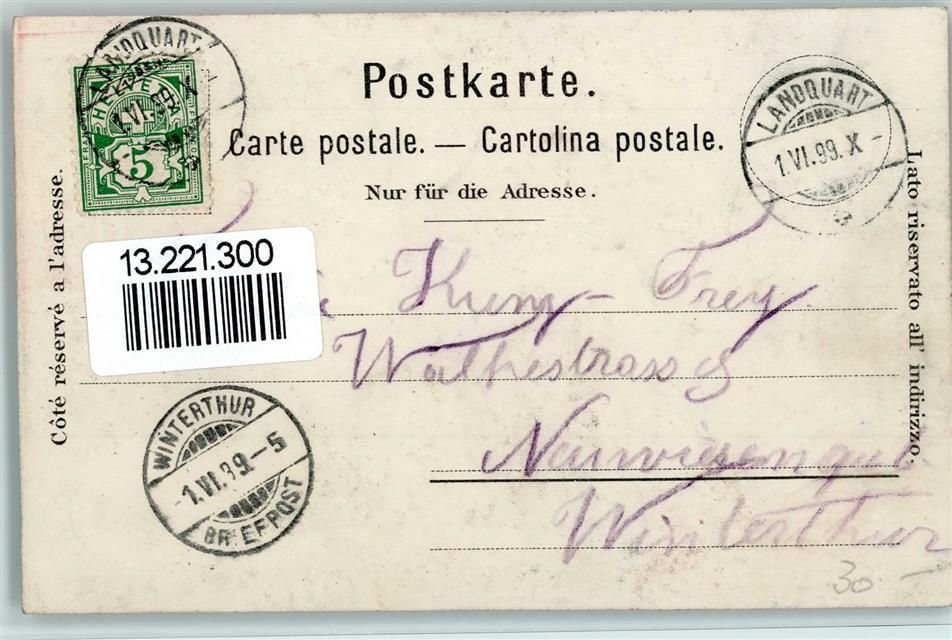 LANDQUART
HELVETIA
1.VI.99.X
5
Postkarte.
Carte postale. — Cartolina postale.
Nur für die Adresse.
LANDQUART
1.VI.99.X-
Côté réservé a l'adresse.
Lato riservato all' indirizzo.
13.221.300
Kunz-Frey
Neuwiesengut
Winterthur
WINTERTHUR
-1.VI.99-5
BRIEFPOST
30 –